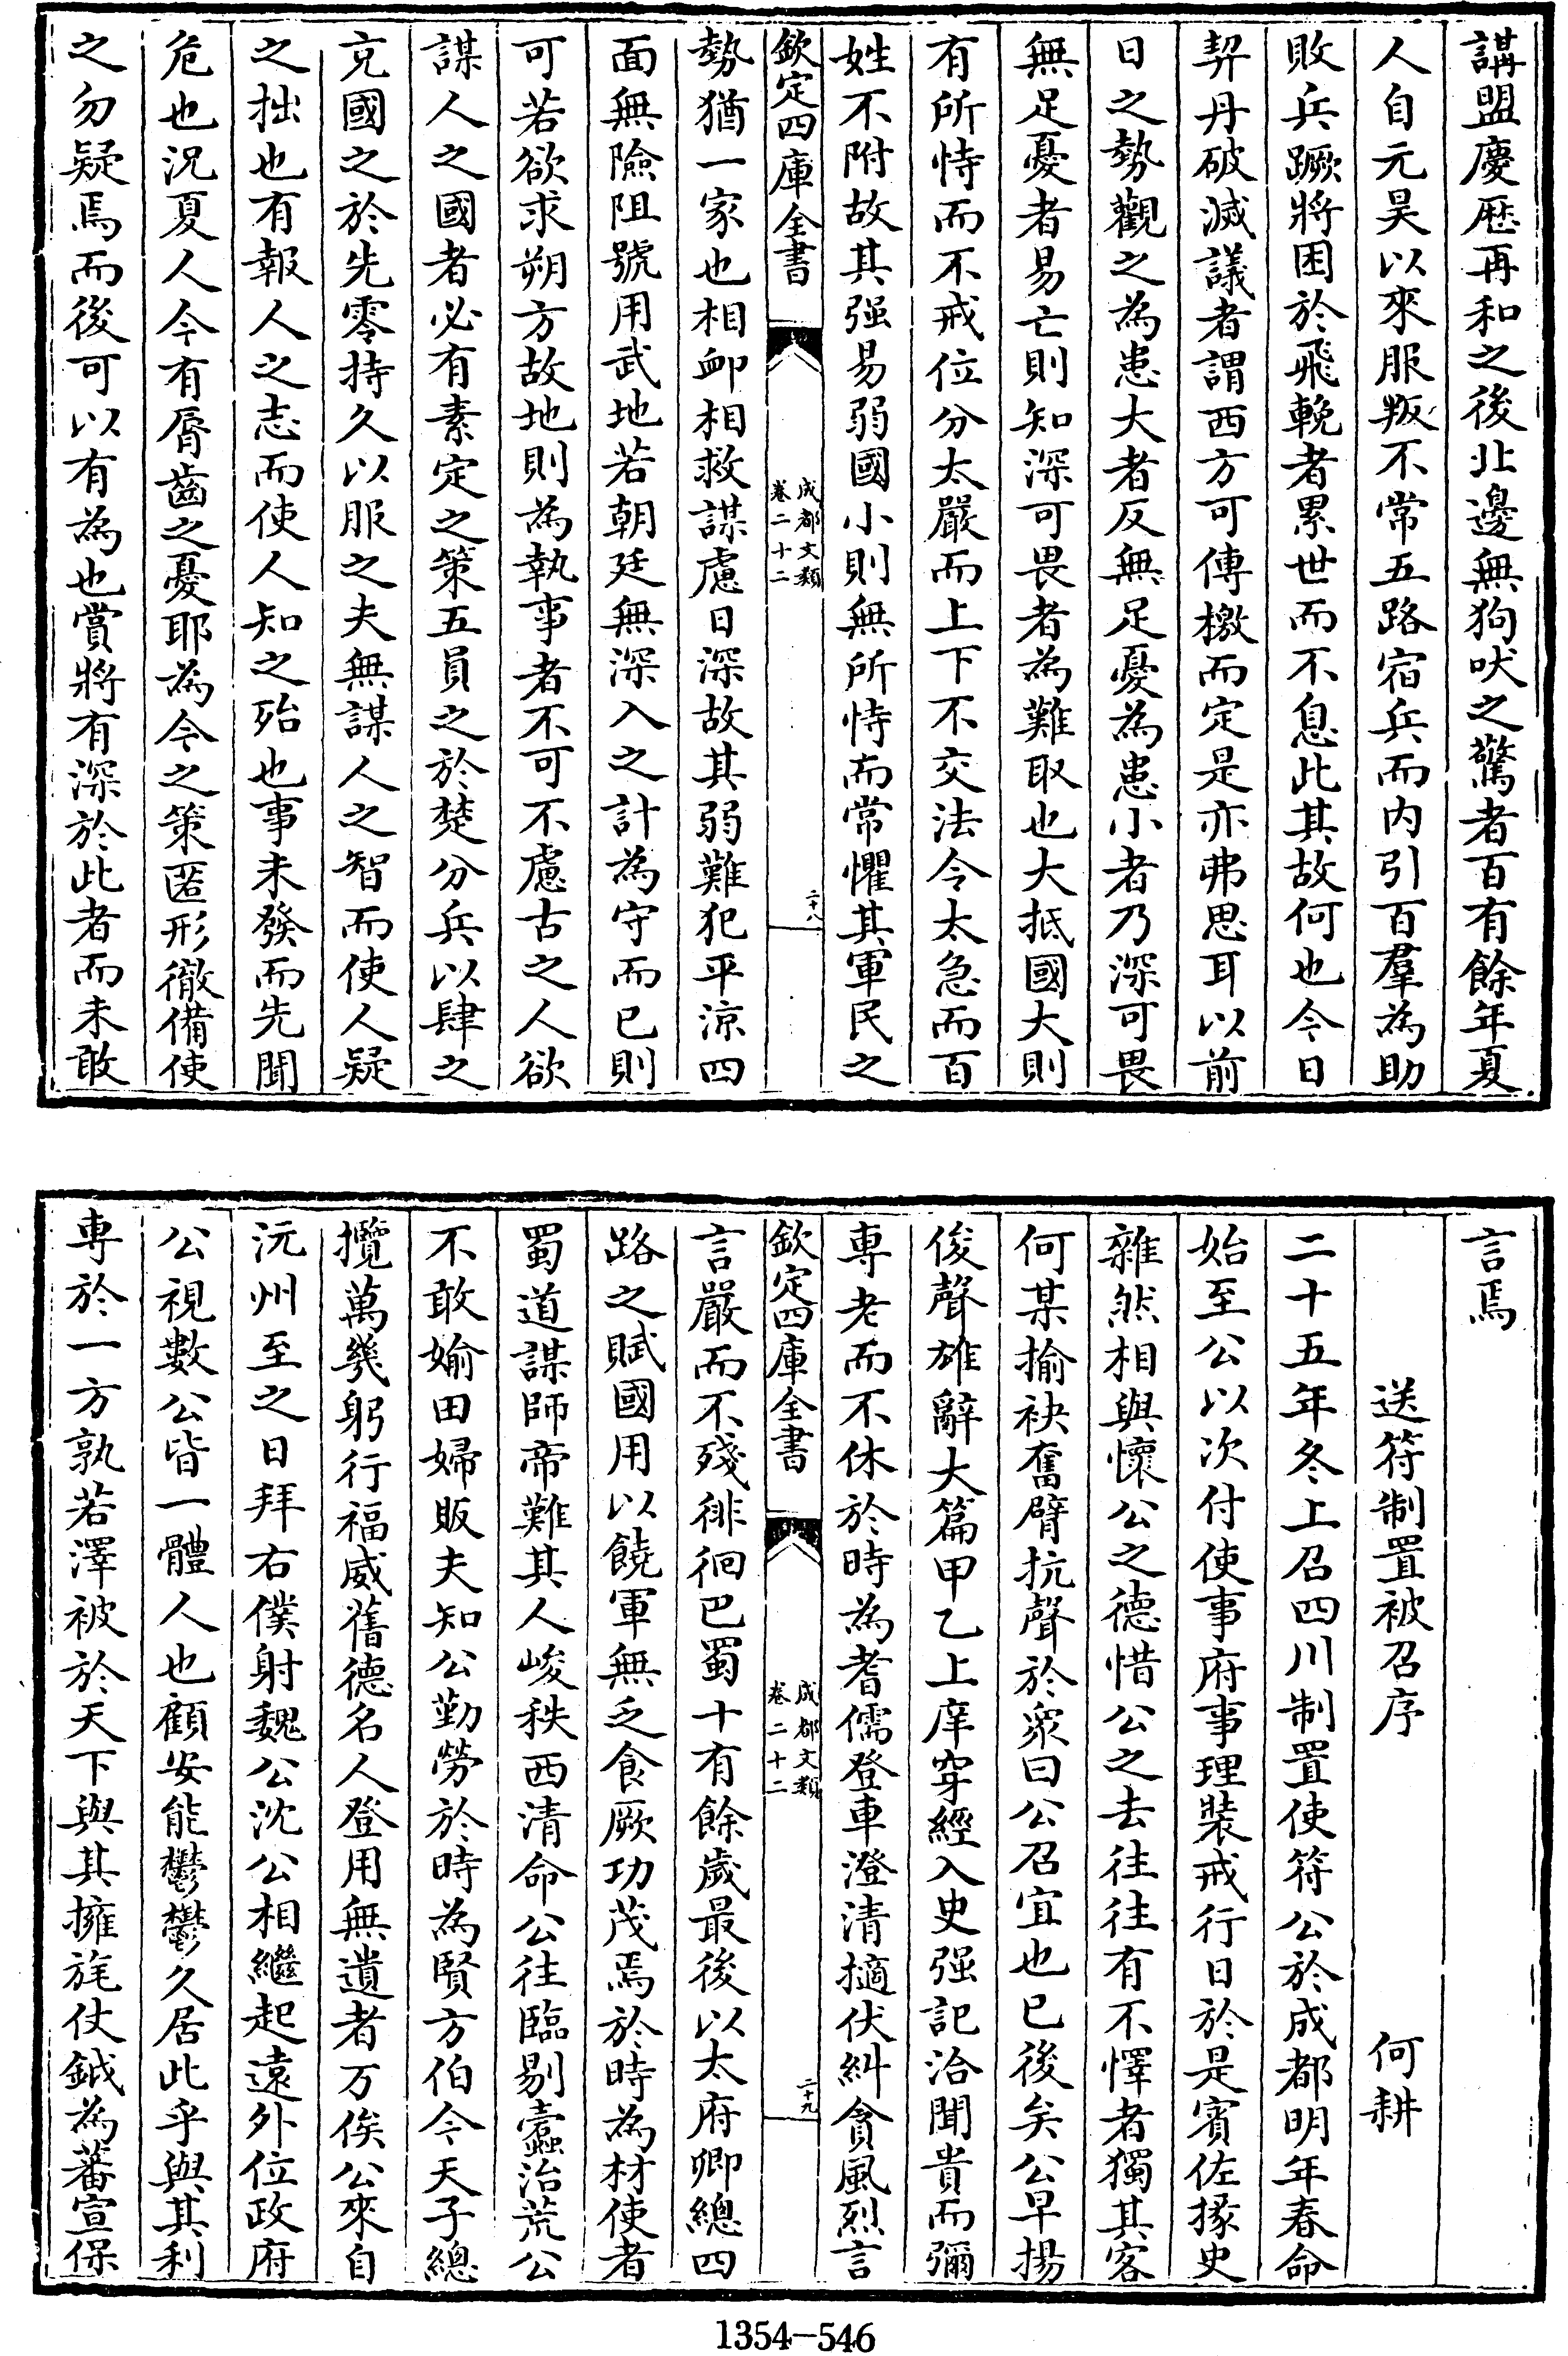 講盟慶厯再和之後北邊無狗吠之驚者百有餘年夏
人自元昊以來服叛不常五路宿兵而内引百羣為助
敗兵蹶將困於飛輓者累世而不息此其故何也今日
契丹破滅議者謂西方可傳檄而定是亦弗思耳以前
日之勢觀之為患大者反無足憂為患小者乃深可畏
無足憂者易亡則知深可畏者為難取也大抵國大則
有所恃而不戒位分太嚴而上下不交法令太急而百
姓不附故其强易弱國小則無所恃而常懼其軍民之
欽定四庫全書
成都文類
卷二十二
二十八
勢猶一家也相䘏相救謀慮日深故其弱難犯平涼四
面無險阻號用武地若朝廷無深入之計為守而已則
可若欲求朔方故地則為執事者不可不慮古之人欲
謀人之國者必有素定之策五員之於楚分兵以肆之
克國之於先零持久以服之夫無謀人之智而使人疑
之拙也有報人之志而使人知之殆也事未發而先聞
危也況夏人今有脣齒之憂耶為今之策匿形徹備使
之勿疑焉而後可以有為也賞將有深於此者而未敢
言焉
送符制置被召序
何耕
二十五年冬上召四川制置使符公於成都明年春命
始至公以次付使事府事理裝戒行日於是賓佐掾史
雜然相與懷公之德惜公之去往往有不懌者獨其客
何某揄袂奮臂抗聲於衆曰公召宜也已後矣公早揚
俊聲雄辭大篇甲乙上庠穿經入史强記洽聞貴而彌
專老而不休於時為耆儒登車澄清擿伏糾貪風烈言
欽定四庫全書
成都文類
卷二十二
二十九
言嚴而不殘徘徊巴蜀十有餘歲最後以太府卿總四
路之賦國用以饒軍無乏食厥功茂焉於時為材使者
蜀道謀師帝難其人峻秩西清命公往臨剔蠹治荒公
不敢媮田婦販夫知公勤勞於時為賢方伯今天子總
攬萬幾躬行福威舊德名人登用無遺者万俟公來自
沅州至之日拜右僕射魏公沈公相繼起遠外位政府
公視數公皆一體人也顧安能鬱鬱久居此乎與其利
專於一方孰若澤被於天下與其擁旄仗鉞為蕃宣保
1354-546